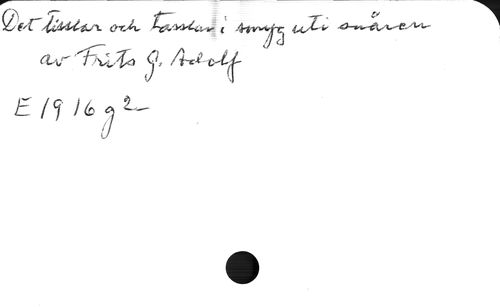 Det tisslar och tasslar i smyg uti snåren
av Frits G. Adolf
E 1916 g 2